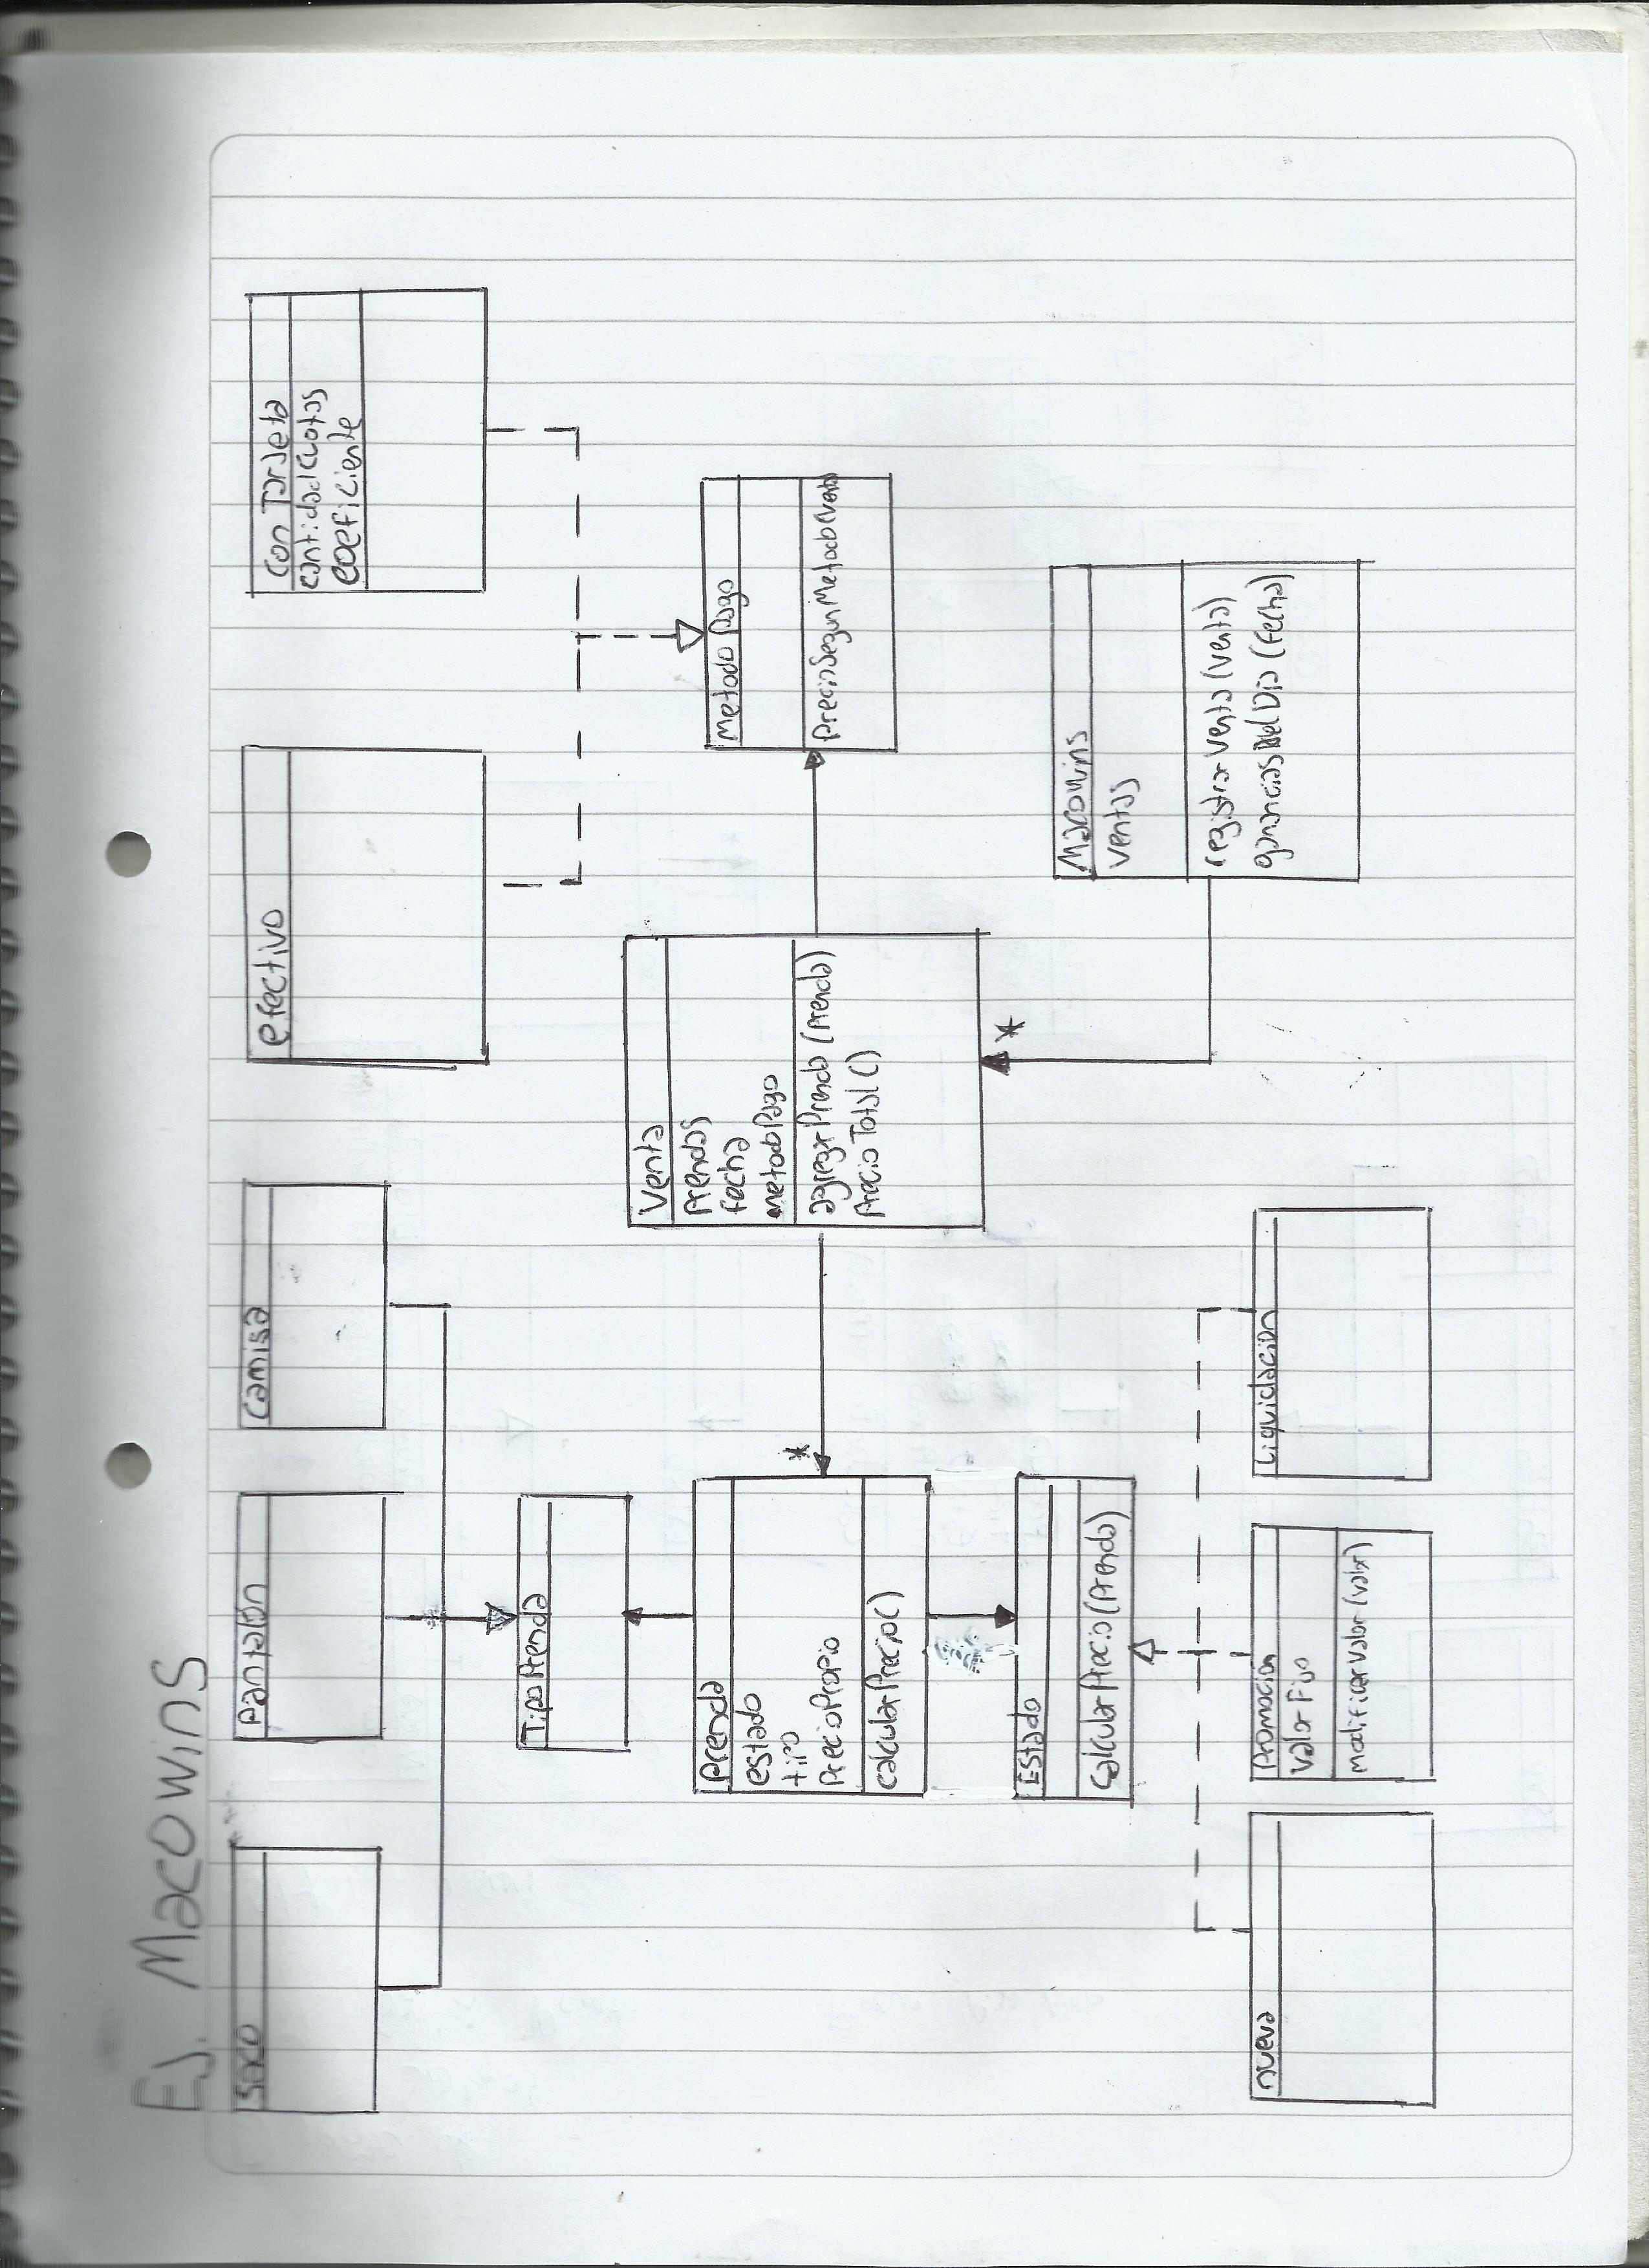 Ej. Macowins
Saco
Pantalón
Camisa
efectivo
Con Tarjeta
cantidadCuotas
coeficiente
TipoPrenda
Prenda
estado
tipo
PrecioPropio
calcularPrecio()
*
Venta
Prendas
fecha
metodoPago
agregarPrenda (Prenda)
PrecioTotal ()
*
MetodoPago
PrecioSegunMetodo(Venta)
Estado
calcularPrecio (Prenda)
Macowins
Ventas
registrarVenta (Venta)
gananciasDelDia (fecha)
nueva
Promocion
Valor Fijo
modificarValor (valor)
Liquidacion